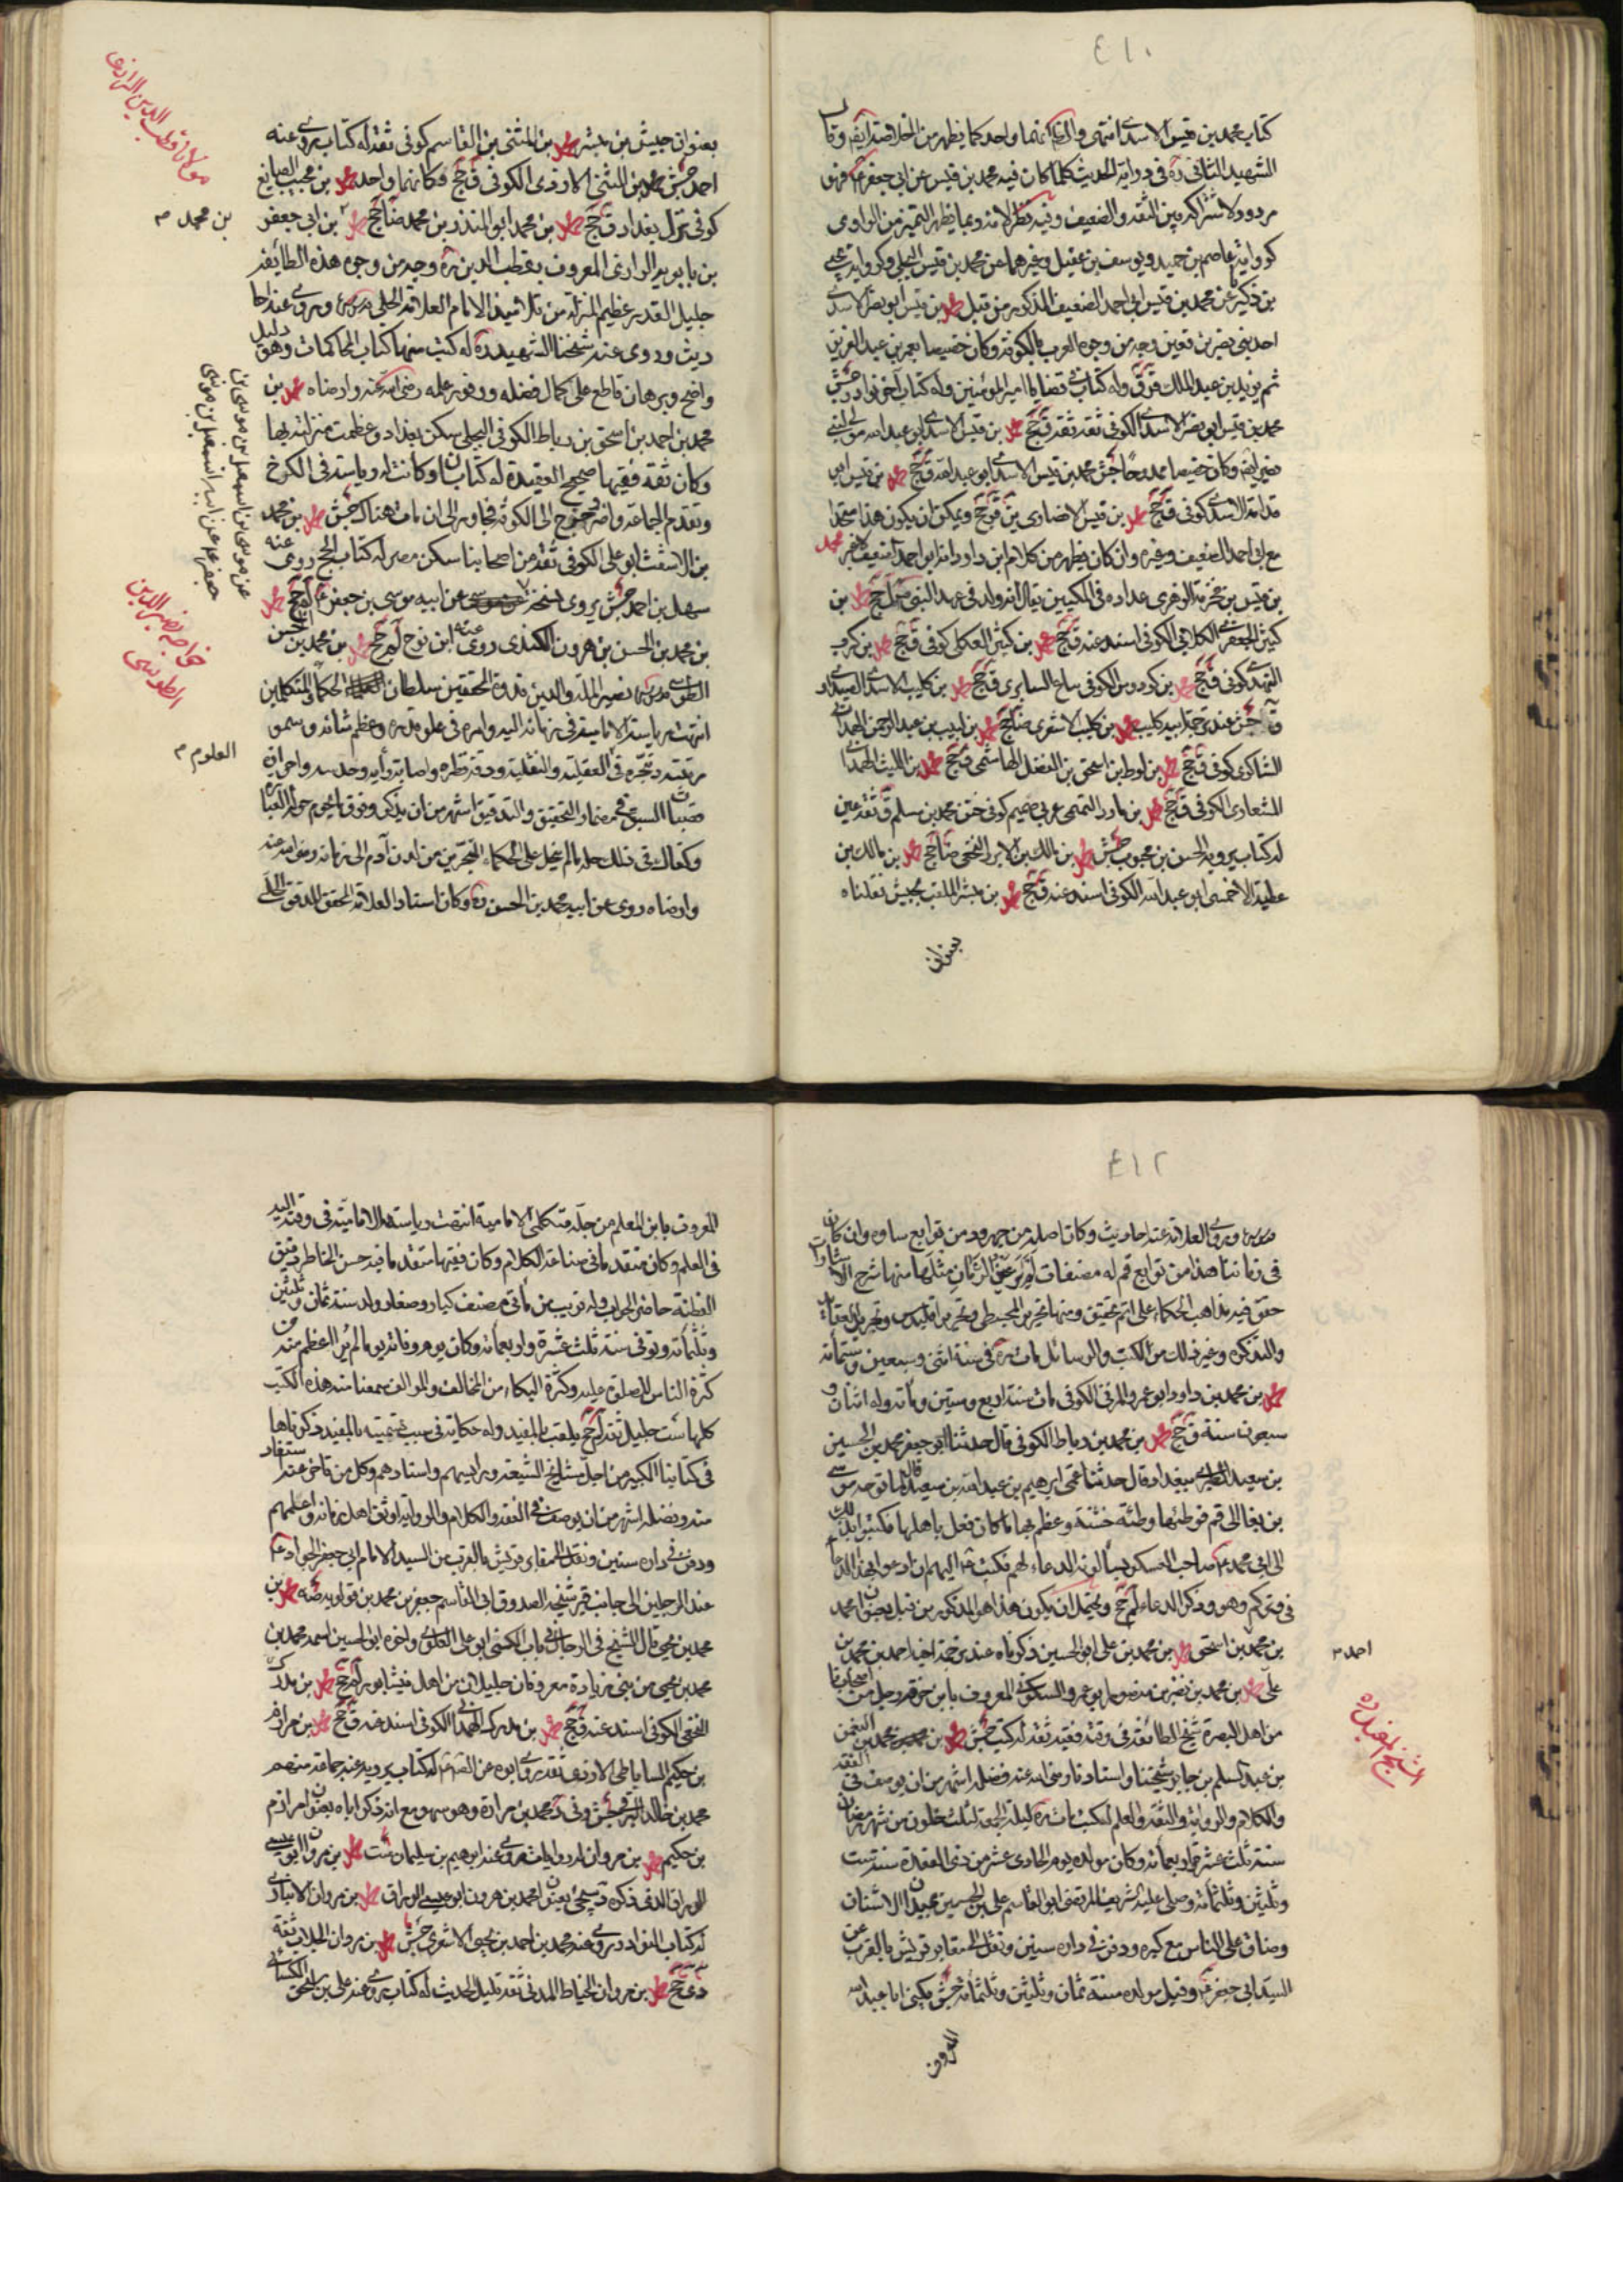 ٤١٠
كتاب محمد بن قيس الاسدي انتهى والظ انهما واحد كما يظهر من الخلاصة ايضا وقال
الشهيد الثاني ره في دراية الحديث كلما كان فيه محمد بن قيس عن ابي جعفر ع فهو
مردود لاشتراكه بين الثقة والضعيف وفيه نظر لانه ربما يظهر التميز من الراوي
كرواية عاصم بن حميد ويوسف بن عقيل وغيرهما عن محمد بن قيس البجلي وكرواية يحيى
بن ذكير عن محمد بن قيس ابي احمد الضعيف المذكور من قبل محمد بن قيس ابو نصر الاسدي
احد بني نصر بن قعين وجه من وجوه العرب بالكوفة وكان خصيصا بعمر بن عبد العزيز
ثم يزيد بن عبد الملك ق ق وله كتاب في قضايا امير المؤمنين وله كتاب آخر نوادر جش
محمد بن قيس ابو نصر الاسدي الكوفي ثقة ثقة ق جخ محمد بن قيس الاسدي ابو عبد الله مولى لبني
نصر ايضا وكان خصيصا ممدوحا جش محمد بن قيس الاسدي ابو عبد الله ق جخ محمد بن قيس ابو
قدامة الاسدي كوفي ق جخ محمد بن قيس الانصاري ين ق جخ ويمكن ان يكون هذا متحدا
مع ابي احمد الضعيف وغيره وان كان يظهر من كلام ابن داود انه ابو احمد الضعيف محمد
بن قيس بن مخرمة الزهري عداده في المكيين يقال انه ولد في عهد النبي ص ل جخ محمد بن
كثير الجعفري الكلابي الكوفي اسند عنه ق جخ محمد بن كثير العكلي كوفي ق جخ محمد بن كرب
النهدي كوفي ق جخ محمد بن كردوس الكوفي بياع السابري ق جخ محمد بن كليب الاسدي الصيداوي
ق جش عند ترجمة ابيه كليب محمد بن كليب الاشعري ضا جخ محمد بن لبيب بن عبد الرحمن الهمداني
الشاكري كوفي ق جخ محمد بن لوط بن اسحق بن الفضل الهاشمي ق جخ محمد بن الليث الهمداني
المشعاري الكوفي ق جخ محمد بن مارد التميمي عربي صميم كوفي ختن محمد بن مسلم ق ثقة عين
له كتاب يرويه الحسن بن محبوب جش محمد بن مالك بن الابرد النخعي ضا جخ محمد بن مالك بن
عطية الاحمسي ابو عبد الله الكوفي اسند عنه ق جخ محمد بن مبشر الملقب بحبيش نقلناه
بعنوان
بعنوان حبيش بن مبشر محمد بن المثنى بن القاسم كوفي ثقة له كتاب يروي عنه
احمد جش محمد بن المثنى الازدي الكوفي ق جخ فكانهما واحد محمد بن مجيب الصايغ
كوفي نزل بغداد ق جخ محمد بن محمد ابو المنذر بن محمد ضا جخ محمد بن ابي جعفر
بن محمد م
مولانا قطب الدين الرازي
بن بابويه الرازي المعروف بقطب الدين ره وجه من وجوه هذه الطائفة
جليل القدر عظيم المنزلة من تلاميذ الامام العلامة الحلي قدس سره وروى عنه احا
ديث وروى عنه شيخنا الشهيد ره له كتب منها كتاب المحاكمات وهو دليل
واضح وبرهان قاطع على كمال فضله ووفور علمه رضي الله عنه وارضاه محمد بن
محمد بن احمد بن اسحق بن رباط الكوفي البجلي سكن بغداد وعظمت منزلته بها
وكان ثقة فقيها صحيح العقيدة له كتابان او كانت له رياسة في الكرخ
وتقدم الجماعة واضر بحجج الى الكوفة فجاور الى ان مات هناك جش محمد بن محمد
بن الاشعث ابو علي الكوفي ثقة من اصحابنا سكن مصر له كتاب الحج روى عنه
سهل بن احمد جش يروي نسخة عن موسى عن ابيه موسى بن جعفر ع لم جخ محمد
عن موسى بن اسمعيل بن موسى بن
جعفر عم عن ابيه اسمعيل بن موسى
بن محمد بن الحسن بن هرون الكندي روى عنه ابن نوح لم جخ محمد بن محمد بن الحسن
خواجه نصير الدين الطوسي
الطوسي قدس سره نصير الملة والدين قدوة المحققين سلطان الحكماء والمتكلمين
انتهت رياسة الامامية في زمانه اليه وامره في علو قدره وعظم شانه وسمو
مرتبته وتبحره في العقلية والنقلية ودقة نظره واصابة رأيه وحدسه واحرازه
العلوم م
قصبات السبق في مضمار التحقيق والتدقيق اشهر من ان يذكر وفوق ما يحوم حوله العبارة
وكفاك في ذلك حله ما لم ينحل على الحكماء المتبحرين من لدن آدم الى زمانه رضي الله عنه
وارضاه روى عن ابيه محمد بن الحسن ره وكان استاد العلامة المحقق المدقق الحلي
٤١٢
قدس سره وروى العلامة عنه احاديث وكان اصله من جهرود من توابع ساوه وان كان
في زماننا هذا من توابع قم له مصنفات لم ير عين الزمان مثلها منها شرح الاشارات
حقق فيه مذاهب الحكماء على اتم تحقيق ومنها تحرير المجسطي وتحرير اقليدس وتجريد العقايد
والتذكرة وغير ذلك من الكتب والرسائل مات ره في سنة اثنى وسبعين وستمائة
محمد بن محمد بن داود ابو عمرو المزني الكوفي مات سنة اربع وستين ومائة وله اثنان و
سبعون سنة ق جخ محمد بن محمد بن رباط الكوفي قال حدثنا ابو جعفر محمد بن الحسين
بن سعيد ببغداد قال حدثنا عمي ابرهيم بن عبد الله بن سعيد قال لما توجه موسى
بن بغا الى قم فوطئها وطئة خشنة وعظم بها ما كان فعل باهلها فكتبوا بذلك
الى ابي محمد ع صاحب العسكر يسألونه الدعاء لهم فكتب ع اليهم ان ادعوا بهذا الدعاء
في وتركم وهو وذكر الدعاء لم جخ ويحتمل ان يكون هذا هو المذكور من قبل بعنوان محمد
بن محمد بن اسحق محمد بن محمد بن علي ابو الحسين ذكرناه عند ترجمة اخيه احمد بن محمد بن
احمد م
علي محمد بن محمد بن نضر بن منصور ابو عمرو السكوني المعروف بابن خرقة رجل من اصحابنا
من اهل البصرة شيخ الطائفة في وقته فقيه ثقة له كتب جش محمد بن محمد بن النعمن
الشيخ المفيد ره
بن عبد السلم بن جابر شيخنا واستادنا رضي الله عنه فضله اشهر من ان يوصف في الفقه
والكلام والرواية والثقة والعلم له كتب مات ره ليلة الجمعة لثلث خلون من شهر رمضان
سنة ثلث عشرة واربعمائة وكان مولده يوم الحادي عشر من ذي القعدة سنة ست
وثلثين وثلثمائة وصلى عليه الشريف المرتضى ابو القاسم علي بن الحسين بميدان الاشنان
وضاق على الناس مع كبره ودفن في داره سنين ونقل الى مقابر قريش بالقرب من
السيد ابي جعفر ع وقيل مولده سنة ثمان وثلثين وثلثمائة جش يكنى ابا عبد الله
المعروف
المعروف بابن المعلم من جملة متكلمي الامامية انتهت رياسة الامامية في وقته اليه
في العلم وكان متقدما في صناعة الكلام وكان فقيها متقدما فيه حسن الخاطر دقيق
الفطنة حاضر الجواب وله قريب من مأتي مصنف كبار وصغار ولد سنة ثمان وثلثين
وثلثمائة وتوفي سنة ثلث عشرة واربعمائة وكان يوم وفاته يوما لم ير اعظم منه من
كثرة الناس للصلوة عليه وكثرة البكاء من المخالف والموالف سمعنا منه هذه الكتب
كلها ست جليل ثقة لم جخ يلقب بالمفيد وله حكاية في سبب تسميته بالمفيد ذكرناها
في كتابنا الكبير من اجل مشايخ الشيعة ورئيسهم واستادهم وكل من تاخر عنه استفاد
منه وفضله اشهر من ان يوصف في الفقه والكلام والرواية اوثق اهل زمانه واعلمهم
ودفن في داره سنين ونقل الى مقابر قريش بالقرب من السيد الامام ابي جعفر الجواد ع
عند الرجلين الى جانب قبر شيخه الصدوق ابي القاسم جعفر بن محمد بن قولويه صه محمد بن
محمد بن يحيى قال الشيخ في الرجال في باب الكنى ابو علي العلوي واخوه ابو الحسين اسمه محمد بن
محمد بن يحيى من بني زيادة معروفان جليلان من اهل نيشابور لم جخ محمد بن مدرك
النخعي الكوفي اسند عنه ق جخ محمد بن مدرك الهمداني الكوفي اسند عنه ق جخ محمد بن مرازم
بن حكيم الساباطي الازدي ثقة روى ابوه عن الصادق ع له كتاب يرويه عنه جماعة منهم
محمد بن خالد البرقي جش وفي د محمد بن مرازم وهو سهو مع انه ذكر اباه بعنوان مرازم
بن حكيم محمد بن مروان له روايات روى عنه ابرهيم بن سليمان ست محمد بن مروان ابو عيسى
الوراق الذي ذكره د سيجئ بعنوان محمد بن هرون ابو عيسى الوراق محمد بن مروان الانباري
له كتاب النوادر روى عنه محمد بن احمد بن يحيى الاشعري جش محمد بن مروان الجلاب ثقة
دي جخ محمد بن مروان الخياط المدني ثقة قليل الحديث له كتاب روى عنه علي بن اسحق الكسائي